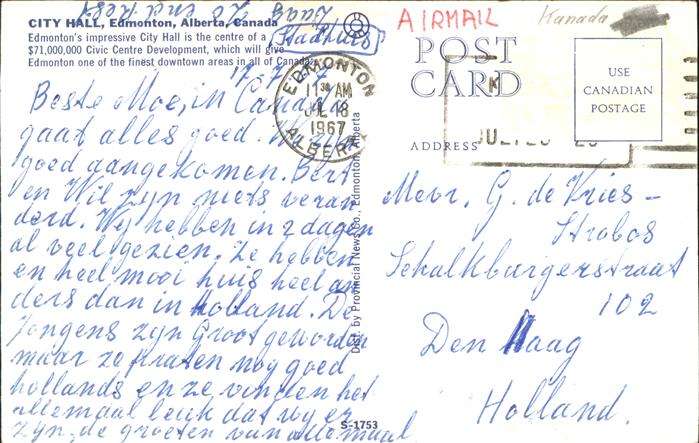 CITY HALL, Edmonton, Alberta, Canada
Edmonton's impressive City Hall is the centre of a
$71,000,000 Civic Centre Development, which will give
Edmonton one of the finest downtown areas in all of Canada.
(Stadhuis)
17-7-'67
Beste Moe, in Canada
gaat alles goed. Wy zyn
goed aangekomen. Bert
en Wil zyn niets veran
derd. Wy hebben in 2 dagen
al veel gezien. Ze hebben
en heel mooi huis heel an
ders dan in Holland. De
Jongens zyn Groot geworden
maar ze praten nog goed
hollands en ze vinden het
allemaal leuk dat wy er
zyn, de groeten van allemaal
EDMONTON
11 30 AM
JUL 18
1967
ALBERTA
Dist. by Provincial News Co., Edmonton, Alberta
S-1753
AIRMAIL
Kanada
POST
CARD
ADDRESS
USE
CANADIAN
POSTAGE
Mevr. G. de Kries-
Strobos
Schalkburgerstraat
102
Den Haag
Holland.